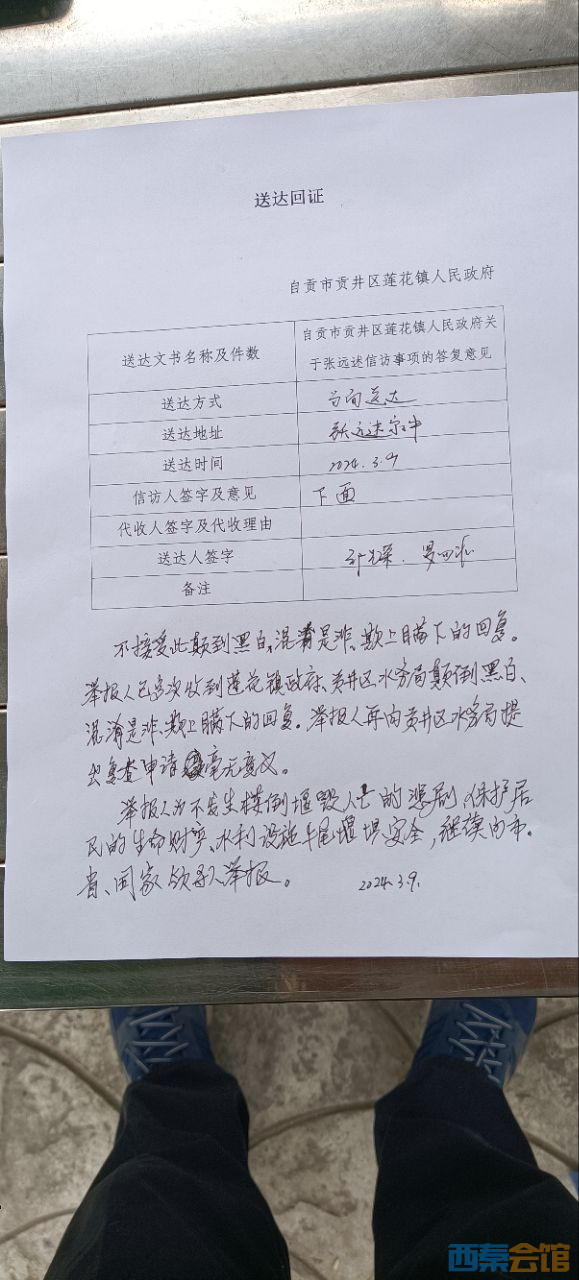 送达回证
自贡市贡井区莲花镇人民政府
送达文书名称及件数
自贡市贡井区莲花镇人民政府关
于张远述信访事项的答复意见
送达方式 当面送达
送达地址 张远述家中
送达时间 2024.3.9
信访人签字及意见 下面
代收人签字及代收理由
送达人签字
备注
不接受此颠到黑白,混淆是非、欺上瞒下的回复。
举报人已多次收到莲花镇政府、贡井区水务局颠倒黑白、
混淆是非、欺上瞒下的回复。举报人再向贡井区水务局提
出复查申请毫无意义。
举报人为不发生楼倒堰毁人亡的悲剧、保护居
民的生命财产、水利设施牛尾堰堤安全,继续向市、
省、国家领导人举报。 2024.3.9.
西秦会馆